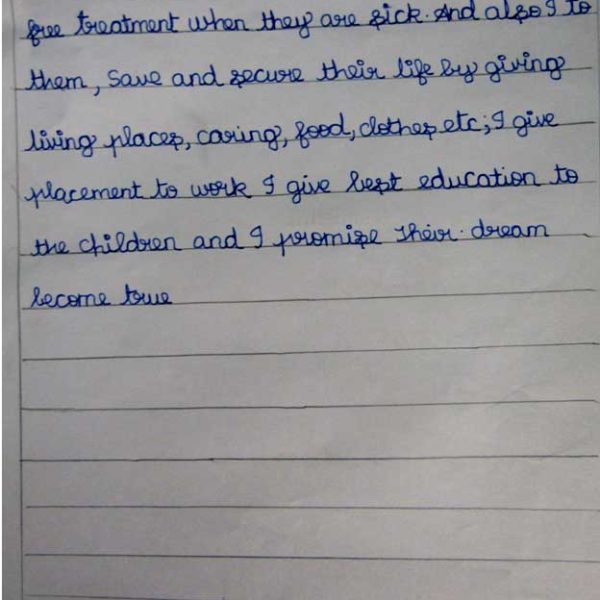 free treatment when they are sick. And also I to
them, save and secure their life by giving
living places, caring, food, clothes etc; I give
placement to work I give best education to
the children and I promise their. dream
become true